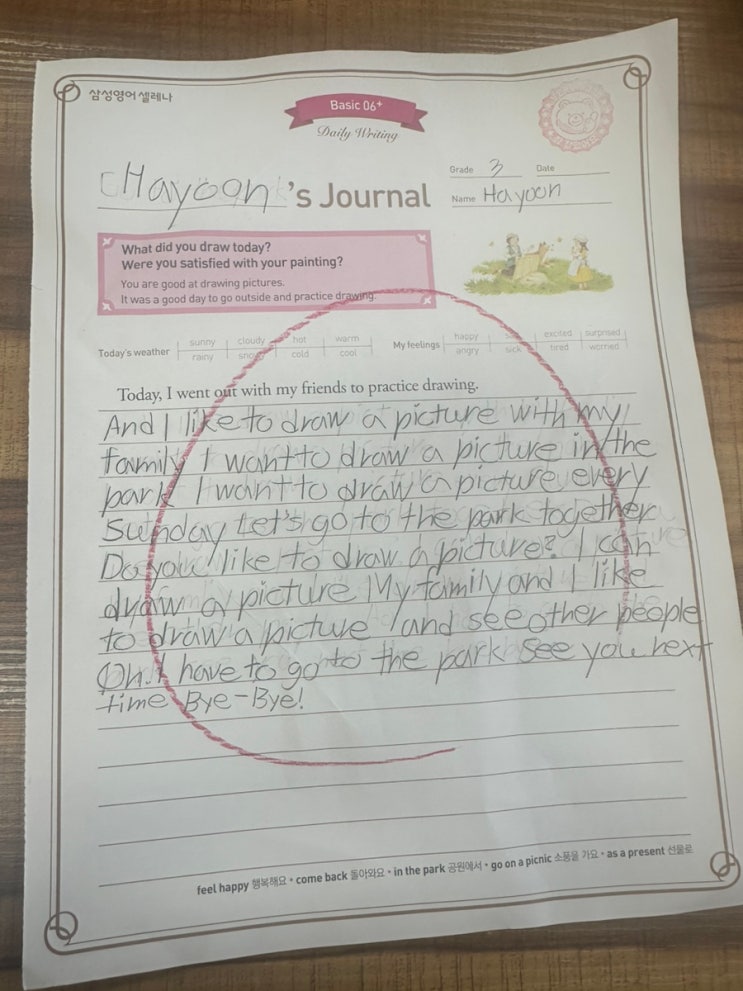 삼성영어 셀레나
Basic 06+
Daily Writing
Hayoon 's Journal
Grade 3 Date
Name Hayoon
What did you draw today?
Were you satisfied with your painting?
You are good at drawing pictures.
It was a good day to go outside and practice drawing.
Today's weather sunny cloudy hot warm
rainy snowy cold cool
My feelings happy excited surprised
angry sick tired worried
Today, I went out with my friends to practice drawing.
And I like to draw a picture with my
family I want to draw a picture in the
park I want to draw a picture every
Sunday Let's go to the park together
Do you like to draw a picture? I can
draw a picture My family and I like
to draw a picture and see other people
Oh. I have to go to the park See you next
time Bye-Bye!
feel happy 행복해요 • come back 돌아와요 • in the park 공원에서 • go on a picnic 소풍을 가요 • as a present 선물로